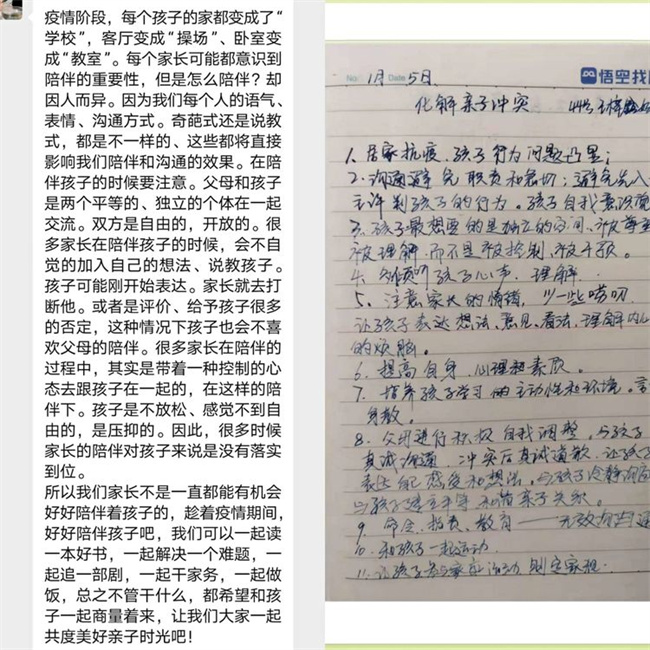 疫情阶段，每个孩子的家都变成了“
学校”，客厅变成“操场”、卧室变
成“教室”。每个家长可能都意识到
陪伴的重要性，但是怎么陪伴？却
因人而异。因为我们每个人的语气、
表情、沟通方式。奇葩式还是说教
式，都是不一样的、这些都将直接
影响我们陪伴和沟通的效果。在陪
伴孩子的时候要注意。父母和孩子
是两个平等的、独立的个体在一起
交流。双方是自由的，开放的。很
多家长在陪伴孩子的时候，会不自
觉的加入自己的想法、说教孩子。
孩子可能刚开始表达。家长就去打
断他。或者是评价、给予孩子很多
的否定，这种情况下孩子也会不喜
欢父母的陪伴。很多家长在陪伴的
过程中，其实是带着一种控制的心
态去跟孩子在一起的，在这样的陪
伴下。孩子是不放松、感觉不到自
由的，是压抑的。因此，很多时候
家长的陪伴对孩子来说是没有落实
到位。
所以我们家长不是一直都能有机会
好好陪伴着孩子的，趁着疫情期间，
好好陪伴孩子吧，我们可以一起读
一本好书，一起解决一个难题，一
起追一部剧，一起干家务，一起做
饭，总之不管干什么，都希望和孩
子一起商量着来，让我们大家一起
共度美好亲子时光吧！
No. 1月5日 Date 悟空找
化解亲子冲突
1. 居家抗疫，孩子行为问题凸显；
2. 沟通避免 职责和 ；避免先入
主评判孩子的行为。孩子自我意识
3. 孩子最想要的是独立的空间、被尊
被理解，而不是被控制，被干预。
4. 倾听孩子心声，理解
5. 注意家长的情绪，少一些唠叨，
让孩子表达想法、意见、看法，理解内心
的烦脑。
6. 提高自身，心理和素质。
7. 培养孩子学习的主动性和环境。言
身教。
8. 父母进行积极自我调整，与孩子
真诚沟通，冲突后真诚道歉，让孩子
表达 感受和想法，与孩子冷静沟
与孩子建立平等和谐亲子关系。
9. 命令、指责、教育——无效沟通
10. 和孩子一起运动
11. 让孩子参与家庭活动 制定家规